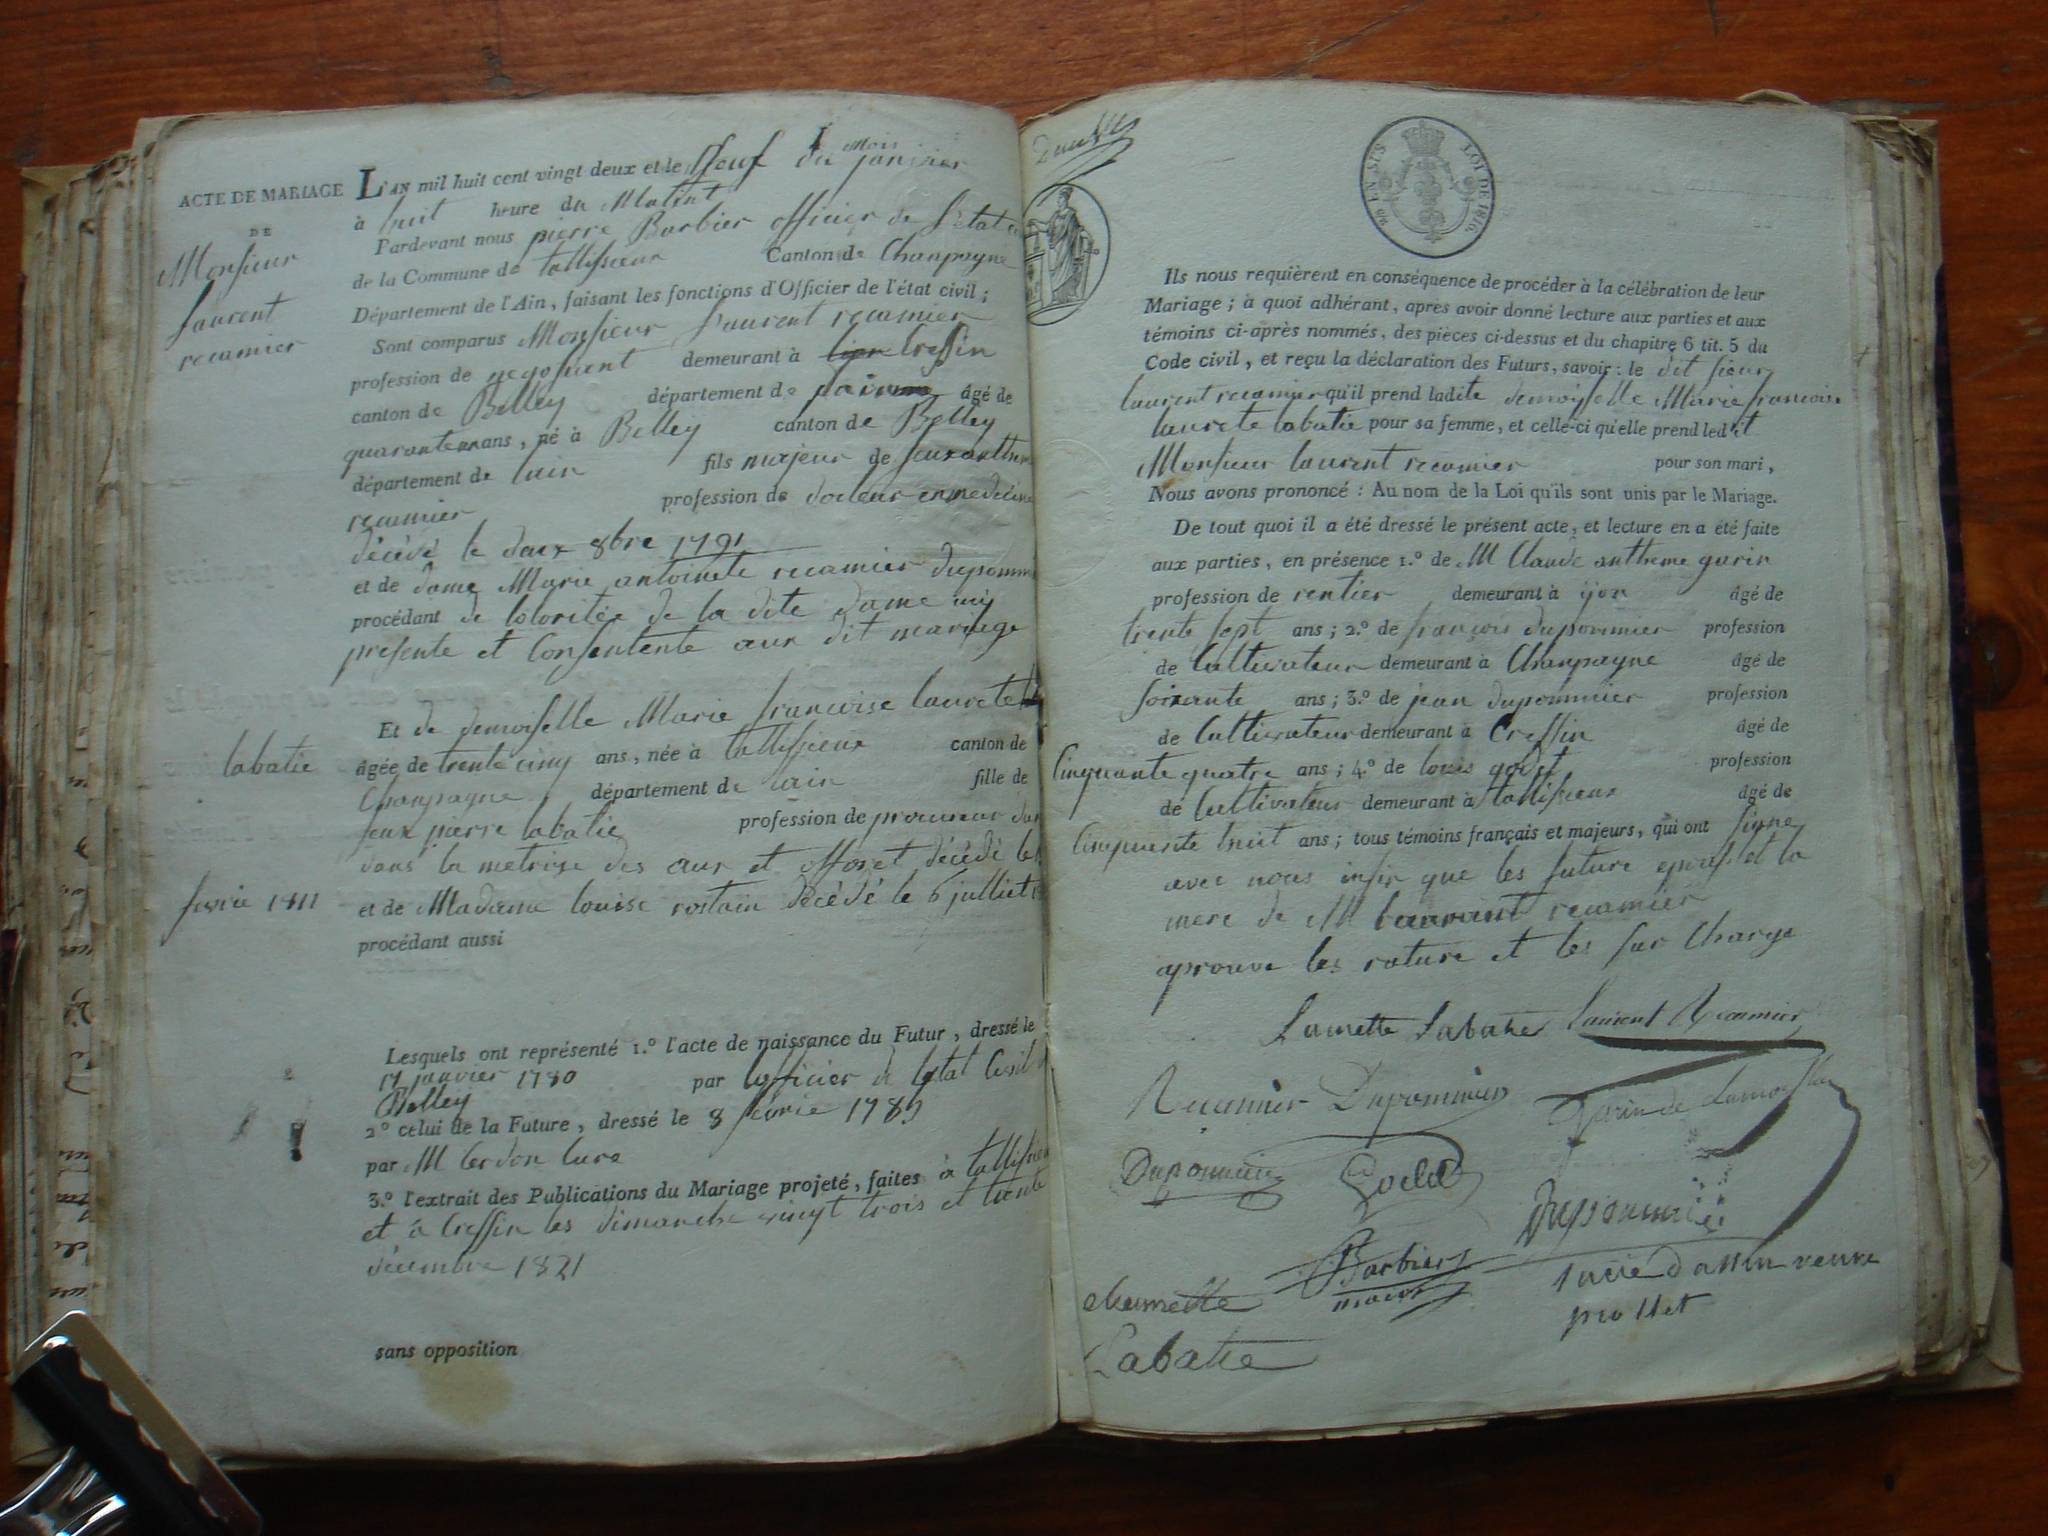 ACTE DE MARIAGE
DE
Monsieur
Laurent
recamier
L'AN mil huit cent vingt deux et le Neuf du Mois janvier
à huit heure du Matint
Pardevant nous pierre Barbier officier de l'etat
de la Commune de tallissieux Canton de Chanpagne
Département de l'Ain, faisant les fonctions d'Officier de l'état civil;
Sont comparus Monsieur Laurent recamier
profession de negosient demeurant à Cressin
canton de Belley département de âgé de
quarante ans, né à Belley canton de Belley
département de lain fils majeur de feux anthelme
recamier profession de docteur en medecine
décévé le deux 8bre 1791
et de dame Marie antoinete recamier dupomm
procédant de lotoritée de la dite dame icy
presente et Consentente aux dit mariage
Et de demoiselle Marie francoise laurete
labatie
âgée de trente cinq ans, née à tallissieux canton de
Chanpagne département de lain fille de
feux pierre labatie profession de procureur
dans la metrise des aux et efforet décédé le
fevrie 1811
et de Madame louise rostain décédé le 6 julliet
procédant aussi
Lesquels ont représenté 1.º l'acte de naissance du Futur, dressé le
17 janvier 1780 par lofficier de letat Civil
Belley
2º celui de la Future, dressé le 8 fevrie 1785
par M Cerdon Cure
3.º l'extrait des Publications du Mariage projeté, faites à tallissieu
et à Cressin les dimanche vingt trois et trente
décembre 1821
sans opposition
LOI DE 1816.
Ils nous requièrent en conséquence de procéder à la célébration de leur
Mariage; à quoi adhérant, après avoir donné lecture aux parties et aux
témoins ci-après nommés, des pièces ci-dessus et du chapitre 6 tit. 5 du
Code civil, et reçu la déclaration des Futurs, savoir: le dit sieur
laurent recamier qu'il prend ladite demoiselle Marie francoise
laurete labatie pour sa femme, et celle-ci qu'elle prend ledit
Monsieur laurent recamier pour son mari,
Nous avons prononcé: Au nom de la Loi qu'ils sont unis par le Mariage.
De tout quoi il a été dressé le présent acte, et lecture en a été faite
aux parties, en présence 1.º de M Claude antheme garin
profession de rentier demeurant à âgé de
trente sept ans; 2.º de françois duponmier profession
de Cultivateur demeurant à Chanpagne âgé de
soixante ans; 3.º de jean duponmier profession
de Cultivateur demeurant à Cressin âgé de
Cinquante quatre ans; 4.º de louis godet profession
de Cultivateur demeurant à tallissieux âgé de
Cinquante huit ans; tous témoins français et majeurs, qui ont signe
avec nous insix que les future epoux et la
mere de M laurant recamier
aprouve les rature et les sur Charge
Laurette Labatie Laurent Recamier
Recamier Dupommier Garin de Lamorflan
Duponmier Godet Dupommier
Barbier
maire
Lucie d'allin veuve
prollet
Labatie